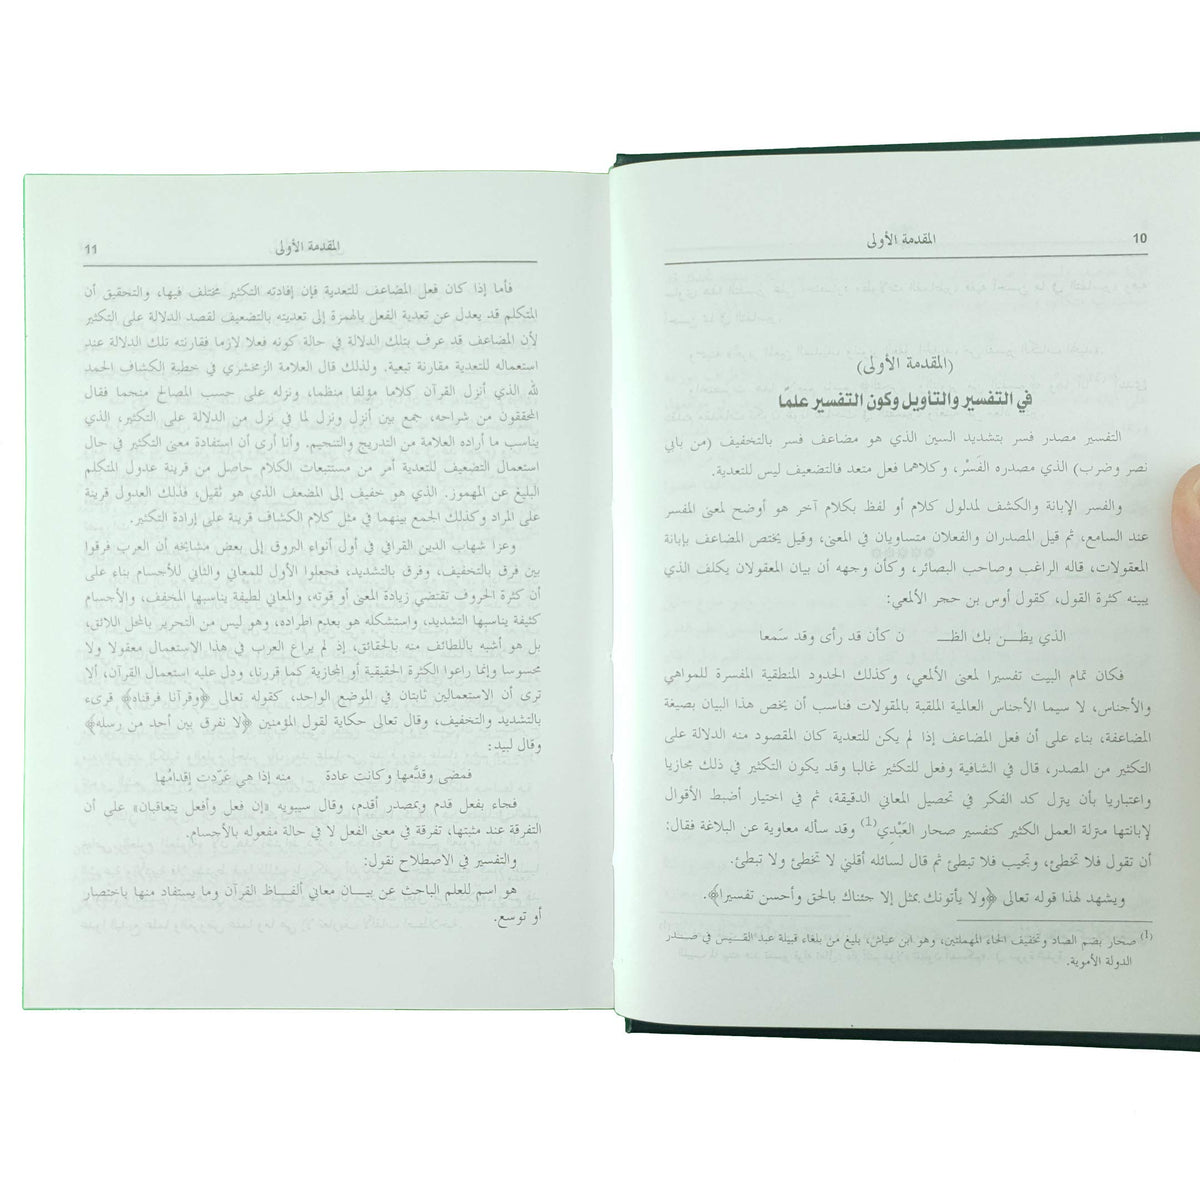 10
المقدمة الأولى
(المقدمة الأولى)
في التفسير والتأويل وكون التفسير علمًا
التفسير مصدر فسر بتشديد السين الذي هو مضاعف فسر بالتخفيف (من بابي
نصر وضرب) الذي مصدره الفَسْر، وكلاهما فعل متعد فالتضعيف ليس للتعدية.
والفسر الإبانة والكشف لمدلول كلام أو لفظ بكلام آخر هو أوضح لمعنى المفسر
عند السامع، ثم قيل المصدران والفعلان متساويان في المعنى، وقيل يختص المضاعف بإبانة
المعقولات، قاله الراغب وصاحب البصائر، وكأن وجهه أن بيان المعقولان يكلف الذي
يبينه كثرة القول، كقول أوس بن حجر الألمعي:
الذي يظــن بك الظــ ن كأن قد رأى وقد سَمعا
فكان تمام البيت تفسيرا لمعنى الألمعي، وكذلك الحدود المنطقية المفسرة للمواهي
والأجناس، لا سيما الأجناس العالمية الملقبة بالمقولات فناسب أن يخص هذا البيان بصيغة
المضاعفة، بناء على أن فعل المضاعف إذا لم يكن للتعدية كان المقصود منه الدلالة على
التكثير من المصدر، قال في الشافية وفعل للتكثير غالبا وقد يكون التكثير في ذلك مجازيا
واعتباريا بأن ينزل كد الفكر في تحصيل المعاني الدقيقة، ثم في اختيار أضبط الأقوال
لإبانتها منزلة العمل الكثير كتفسير صحار العَبْدِي(1) وقد سأله معاوية عن البلاغة فقال:
أن تقول فلا تخطئ، وتجيب فلا تبطئ ثم قال لسائله أقلني لا تخطئ ولا تبطئ.
ويشهد لهذا قوله تعالى ﴿ولا يأتونك بمثل إلا جئناك بالحق وأحسن تفسيرا﴾.
(1) صحار بضم الصاد وتخفيف الحاء المهملتين، وهو ابن عياش، بليغ من بلغاء قبيلة عبد القـيس في صـدر
الدولة الأموية.
المقدمة الأولى
11
فأما إذا كان فعل المضاعف للتعدية فإن إفادته التكثير مختلف فيها، والتحقيق أن
المتكلم قد يعدل عن تعدية الفعل بالهمزة إلى تعديته بالتضعيف لقصد الدلالة على التكثير
لأن المضاعف قد عرف بتلك الدلالة في حالة كونه فعلا لازما فقارنته تلك الدلالة عند
استعماله للتعدية مقارنة تبعية. ولذلك قال العلامة الزمخشري في خطبة الكشاف الحمد
لله الذي أنزل القرآن كلاما مؤلفا منظما، ونزله على حسب المصالح منجما فقال
المحققون من شراحه، جمع بين أنزل ونزل لما في نزل من الدلالة على التكثير، الذي
يناسب ما أراده العلامة من التدريج والتنجيم. وأنا أرى أن استفادة معنى التكثير في حال
استعمال التضعيف للتعدية أمر من مستتبعات الكلام حاصل من قرينة عدول المتكلم
البليغ عن المهموز. الذي هو خفيف إلى المضعف الذي هو ثقيل، فذلك العدول قرينة
على المراد وكذلك الجمع بينهما في مثل كلام الكشاف قرينة على إرادة التكثير.
وعزا شهاب الدين القرافي في أول أنواء البروق إلى بعض مشايخه أن العرب فرقوا
بين فرق بالتخفيف، وفرق بالتشديد، فجعلوا الأول للمعاني والثاني للأجسام بناء على
أن كثرة الحروف تقتضي زيادة المعنى أو قوته، والمعاني لطيفة يناسبها المخفف، والأجسام
كثيفة يناسبها التشديد، واستشكله هو بعدم اطراده، وهو ليس من التحرير بالمحل اللائق،
بل هو أشبه باللطائف منه بالحقائق، إذ لم يراع العرب في هذا الاستعمال معقولا ولا
محسوسا وإنما راعوا الكثرة الحقيقية أو المجازية كما قررنا، ودل عليه استعمال القرآن، ألا
ترى أن الاستعمالين ثابتان في الموضع الواحد، كقوله تعالى ﴿وقرآنا فرقناه﴾ قرىء
بالتشديد والتخفيف، وقال تعالى حكاية لقول المؤمنين ﴿لا نفرق بين أحد من رسله﴾
وقال لبيد:
فمضى وقدَّمها وكانت عادة منه إذا هي عَرَّدت إقدامُها
فجاء بفعل قدم وبمصدر أقدم، وقال سيبويه «إن فعل وأفعل يتعاقبان» على أن
التفرقة عند مثبتها، تفرقة في معنى الفعل لا في حالة مفعوله بالأجسام.
والتفسير في الاصطلاح نقول:
هو اسم للعلم الباحث عن بيـان معاني ألفـاظ القرآن وما يستفاد منها باختصار
أو توسع.